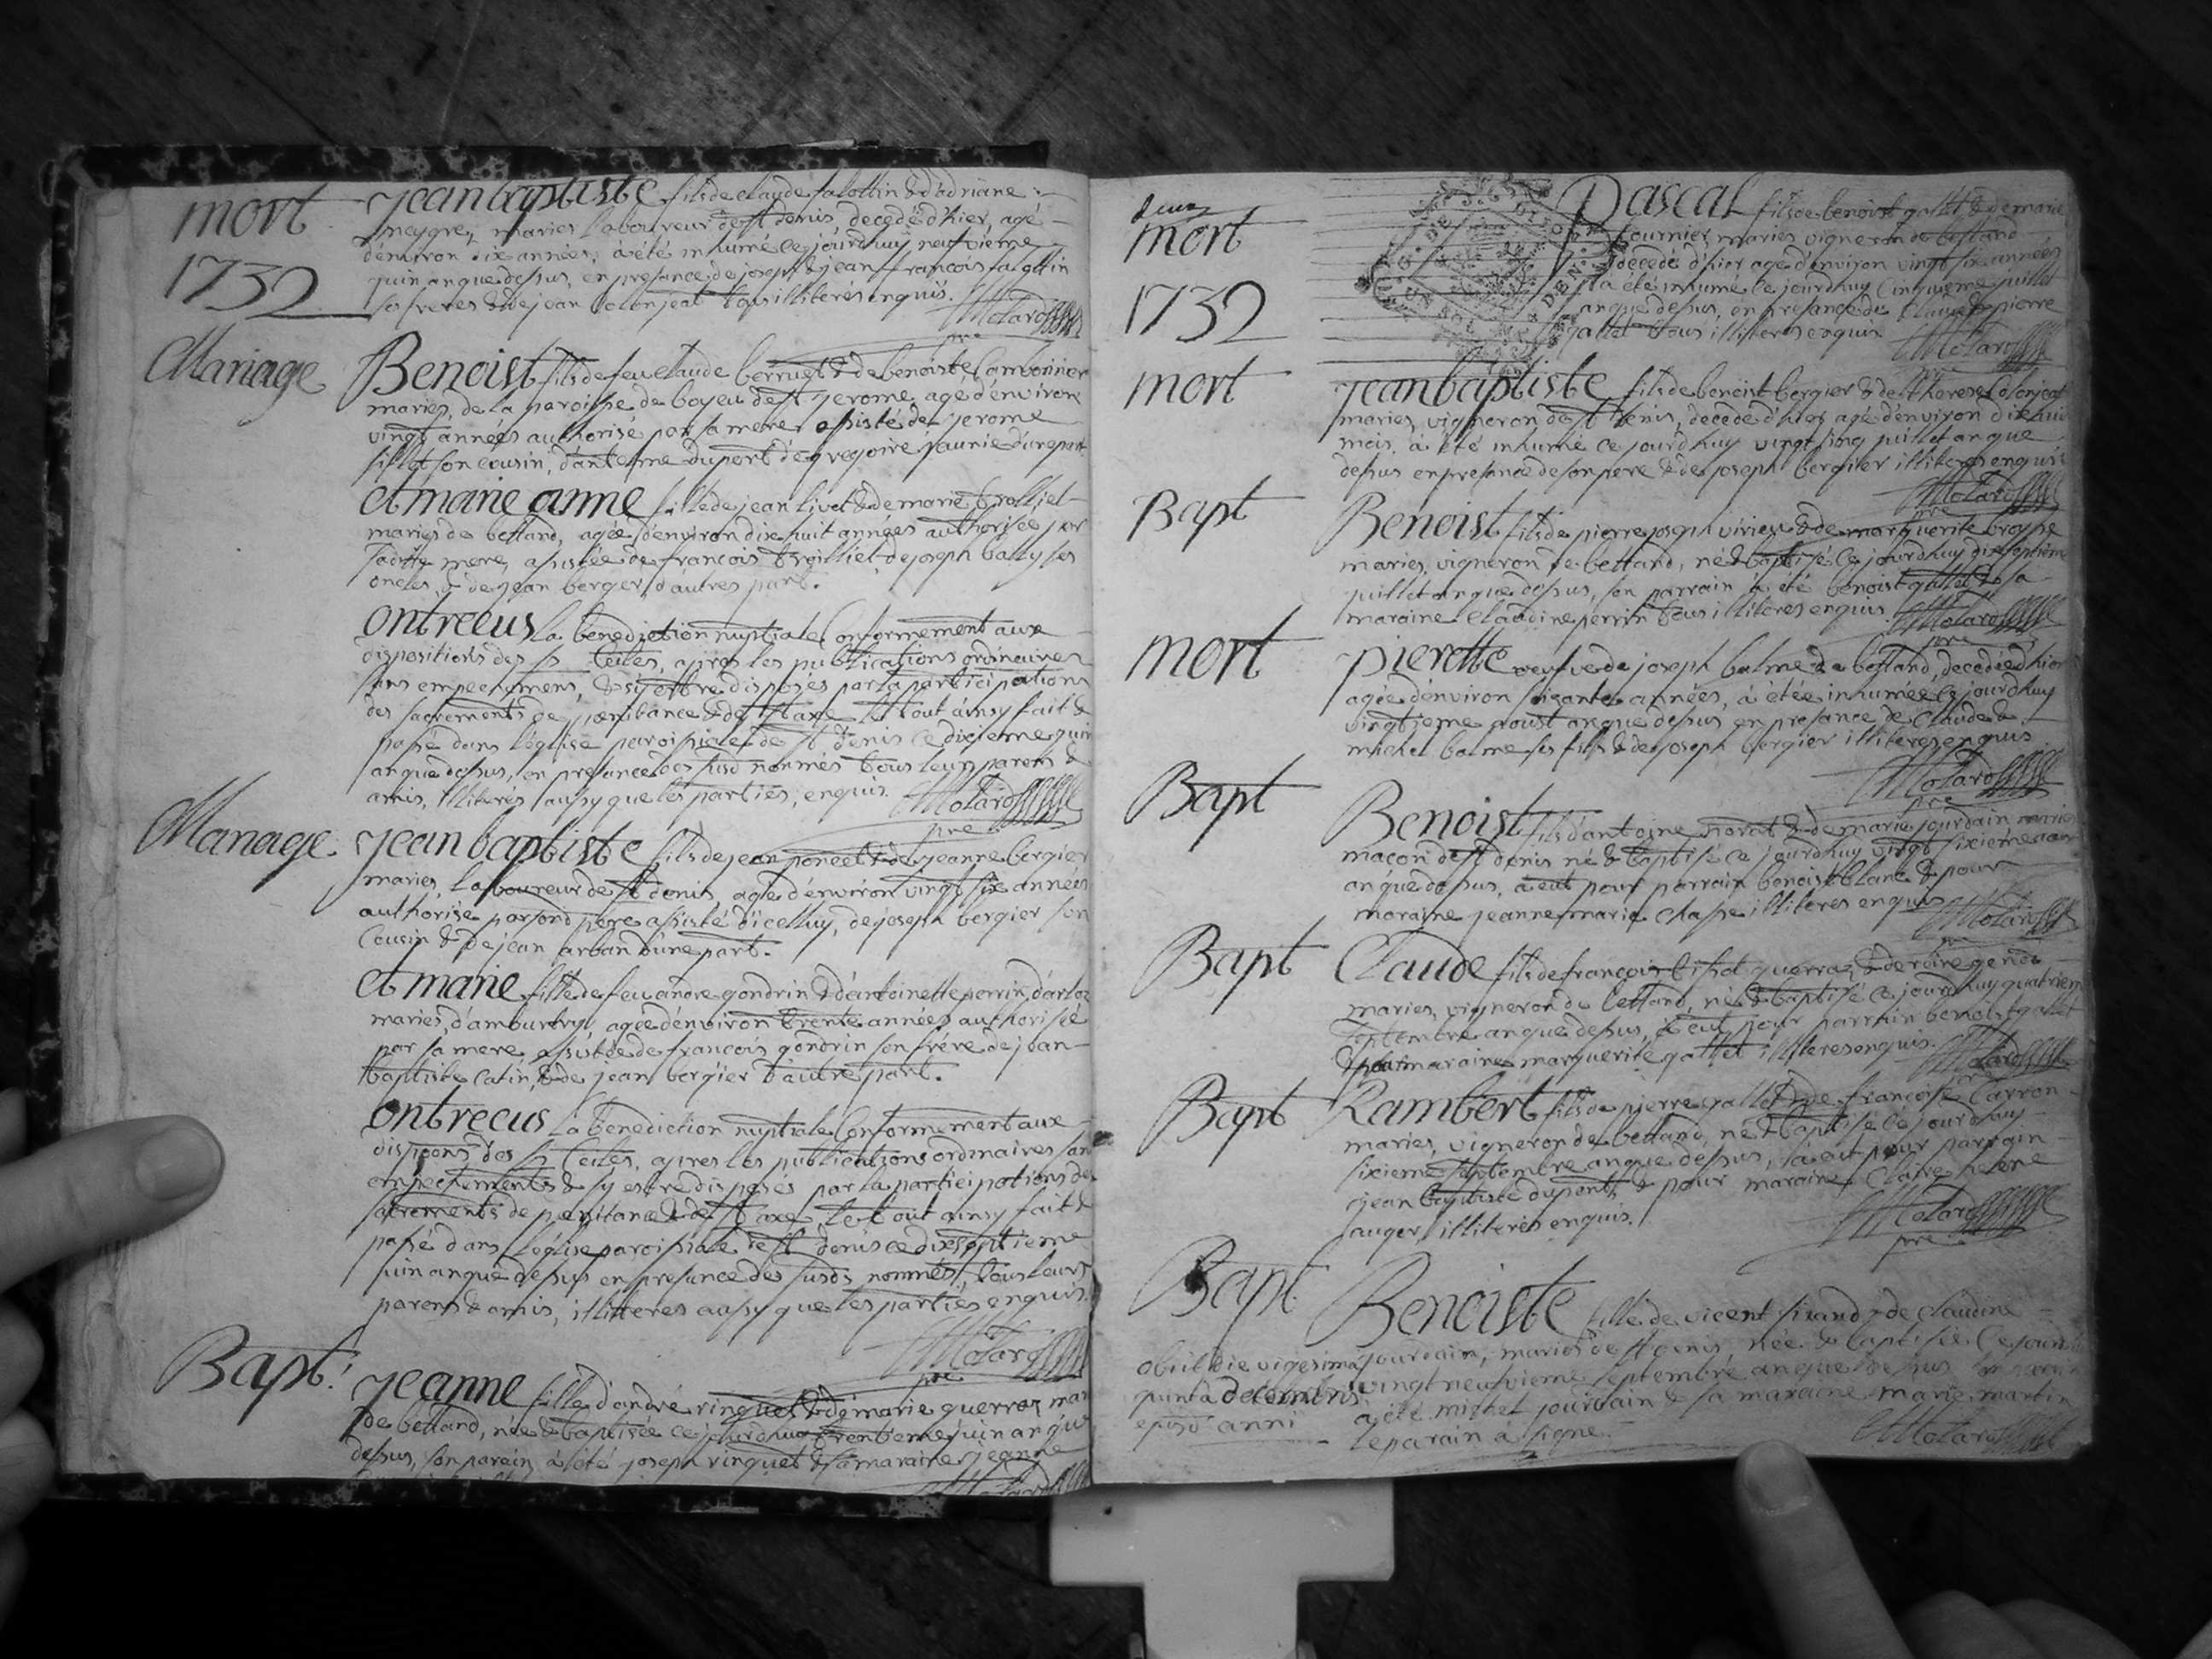 mort
1732
Jean baptiste fils de claude falottin & d'adriane
neygre, mariés laboureur de st denis decedé d'hier, agé
d'environ dix années, à été inhumé ce jourd'huy neufvième
juin anque dessus, en presance de joseph & jean françois falottin
ses freres & de jean colonjeat tous illiterés enquis.
Molard
pre
Mariage
Benoist fils de feu claude berruet & de benoiste Cambonnier
mariés, de la paroisse de boyeu de st jerome agé d'environ
vingt années authorisé par sa mere assisté de jerome
fillet son cousin, d'antelme dupont de gregoire d'une part
et marie anne fille de jean livet & de marie trolliet
mariés de bettand, agée d'environ dix huit années authorisée par
sadite mere, assistée de françois trolliet de joseph bally ses
oncles, & de jean berger d'autres part.
ont recus la benediction nuptiale Conformement aux
dispositions des Sts Cciles, apres les publications ordinaires
sans empechement, & si estre disposés par la participations
des sacrements de pœnitance & de le tout ainsy fait &
passé dans l'église paroissiale de st denis ce dixieme juin
anque dessus, en presance des susd nommés tous leurs parens &
amis, illiterés aussy que les parties, enquis.
Molard
pre
Mariage
Jean baptiste fils de jean poncet & de jeanne bergier
mariés, laboureur de st denis agé d'environ vingt six années
authorisé par sond pere assisté d'icelluy, de joseph bergier son
Cousin & de jean arban d'une part.
et marie fille de feu andré gondrin & d'antoinette perrin
mariés, d'ambutrix, agée d'environ trente années authorisée
par sa mere assistée de françois gondrin son frére de jean
baptiste catin, & de jean bergier d'autre part.
ont recus la benediction nuptiale Conformement aux
dispions des Sts Cciles, apres les publications ordinaires sans
empechements & sy estre disposés par la participations des
sacrements de pœnitance & de le tout ainsy fait &
passé dans l'église paroissiale de st denis ce dixseptieme
juin anque dessus en presance des susds nommés, tous leurs
parens & amis, illitteres aussy que les parties enquis.
Molard
pre
Bapt.
Jeanne fille d'andré rinquet & de marie guerraz mar
de bettand, née & baptisée ce jourd'huy trentieme juin anque
dessus, son parrain à été joseph rinquet & sa maraine jeanne
Molard
deux
mort
1732
Pascal fils de benoist gallet & de marie
fournier, mariés vigneron de bettand
décedé d'hier agé d'environ vingt six années
à été inhumé ce jourd'huy cinquieme juillet
anque dessus, en presance de claude & pierre
gallet tous illiterés enquis
Molard
pre
mort
Jean baptiste fils de benoist bergier & de therese colonjeat
mariés, vigneron de st denis, decedé d'hier agé d'environ dixhuit
mois, à été inhumé ce jourd'huy vingt cinq juillet anque
dessus en presance de son pere & de joseph bergier illiterés enquis
Molard
pre
Bapt
Benoist fils de pierre joseph virieu & de marguerite brosse
mariés, vigneron de bettand, né & baptisé ce jourd'huy dixseptiem
juillet anque dessus, son parrain a été benoist gallet & sa
maraine Claudine perrin tous illiterés enquis.
Molard
pre
mort
pierrette veufve de joseph balme de bettand, decedée d'hier
agée d'environ soixante années, à étée inhumée ce jourd'huy
vingtieme aoust anque dessus en presance de claude &
michel balme ses fils & de joseph bergier illiteres enquis
Molard
pre
Bapt
Benoist fils d'antoine morat & de marie jourdain mariés
maçon de st denis né & baptisé ce jourd'huy vingt sixiéme
anque dessus, a eut pour parrain benoist blanc & pour
maraine jeanne marie chasse illiteres enquis
Molard
pre
Bapt
Claude fils de françois guerraz, & de
mariés, vigneron de bettand, né & baptisé ce jourd'huy quatriem
septembre anque dessus, à eut pour parrain benoist gallet
& pour maraine marguerite gallet illiteres enquis.
Molard
Bapt
Rambert fils de pierre gallet & de françoise Carron
mariés, vigneron de bettand, né & baptisé ce jourd'huy
sixieme septembre anque dessus, à eut pour parrain
jean baptiste dupont, & pour maraine Claire helene
jauger, illiterés enquis.
Molard
pre
Bapt.
Benoiste fille de vicent sirand & de claudine
jourdain, mariés de st denis, née & baptisée ce jourd
vingt neufvieme septembre anque dessus
a été michel jourdain & sa maraine marie martin
le parain à signé
Molard
obiit die vigesima
quinta decembris
ejusd anni